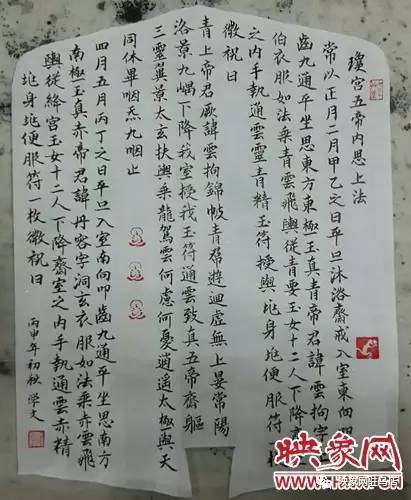 瓊宮五帝內思上法
常以正月二月甲乙之日平旦沐浴齋戒入室東向叩
齒九通平坐思東方東極玉真青帝君諱雲拘字
伯衣服如法乘青雲飛輿從青要玉女十二人下降
之內手執通雲靈青精玉符授與兆身兆便服符一枚
微祝曰
青上帝君厥諱雲拘錦帔青帬遊迴虛無上晏常陽
洛景九嵎下降我室授我玉符通雲致真五帝齋軀
三靈翼景太玄扶輿乘龍駕雲何慮何憂逍遙太極與天
同休畢咽炁九咽止
四月五月丙丁之日平旦入室南向叩齒九通平坐思南方
南極玉真赤帝君諱丹容字洞玄衣服如法乘赤雲飛
輿從絳宮玉女十二人下降齋室之內手執通雲赤精
兆身兆便服符一枚微祝曰
丙申年初秋 學文
映象网
www.hnr.cn
映象网驻马店